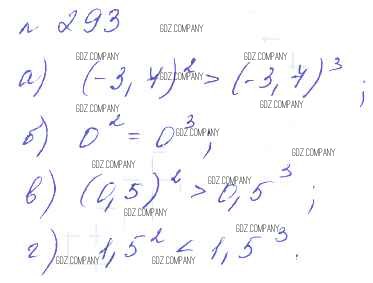 № 293
GDZ.COMPANY
GDZ.COMPANY GDZ.COMPANY
а) (-3,7)² > (-3,7)³ ;
GDZ.COMPANY GDZ.COMPANY
б) 0² = 0³ ;
GDZ.COMPANY
GDZ.COMPANY GDZ.COMPANY
в) (0,5)² > 0,5³ ;
GDZ.COMPANY
GDZ.COMPANY
GDZ.COMPANY
г) 1,5² < 1,5³ .
GDZ.COMPANY GDZ.COMPANY